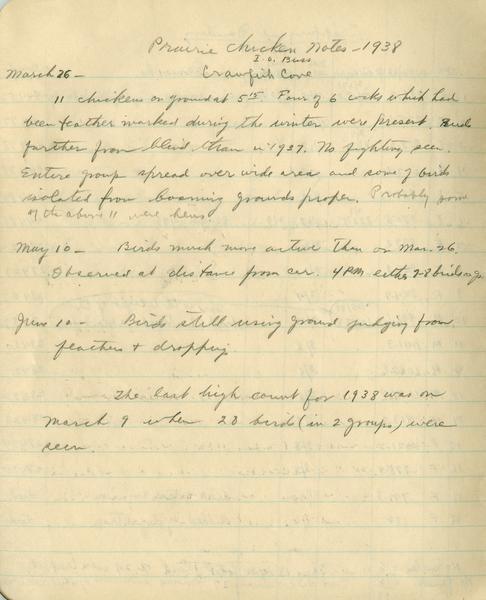 Prairie Chicken Notes - 1938
I. O. Buss
March 26 - Crawfish Cove
11 chickens on ground at 5 15. Four of 6 cocks which had
been feather marked during the winter were present. Birds
farther from blind than in 1937. No fighting seen.
Entire group spread over wide area and some of birds
isolated from booming grounds proper. Probably some
of the above 11 were hens.
May 10 - Birds much more active than on Mar. 26.
Observed at distance from car. 4 PM either 7-8 birds on
June 10 - Birds still using ground judging from
feathers & dropping
The last high count for 1938 was on
March 9 when 20 birds (in 2 groups) were
seen.